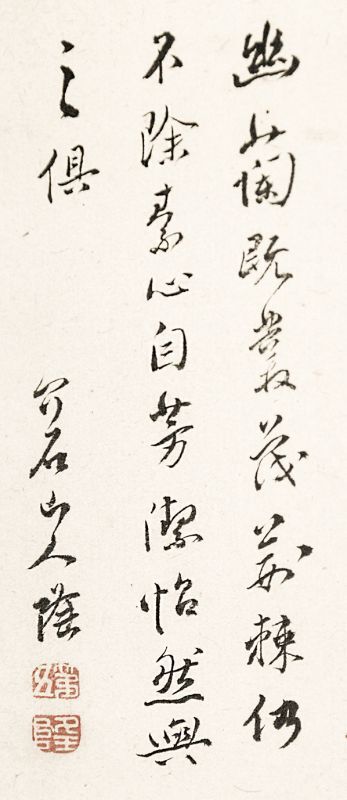 幽蘭既叢茂荊棘仍
不除素心自芳潔怡然與
之俱
介石山人隆